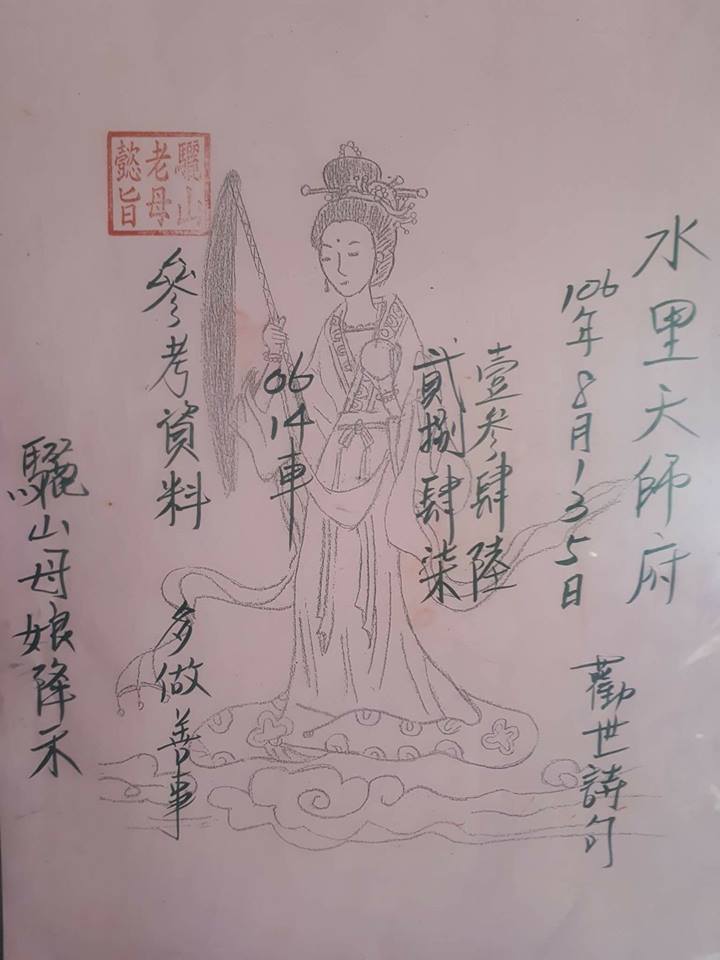 水里天師府
106年8月135日
勸世詩句
壹參肆陸
貳捌肆柒
06
14車
驪山
老母
懿旨
參考資料
多做善事
驪山母娘降示